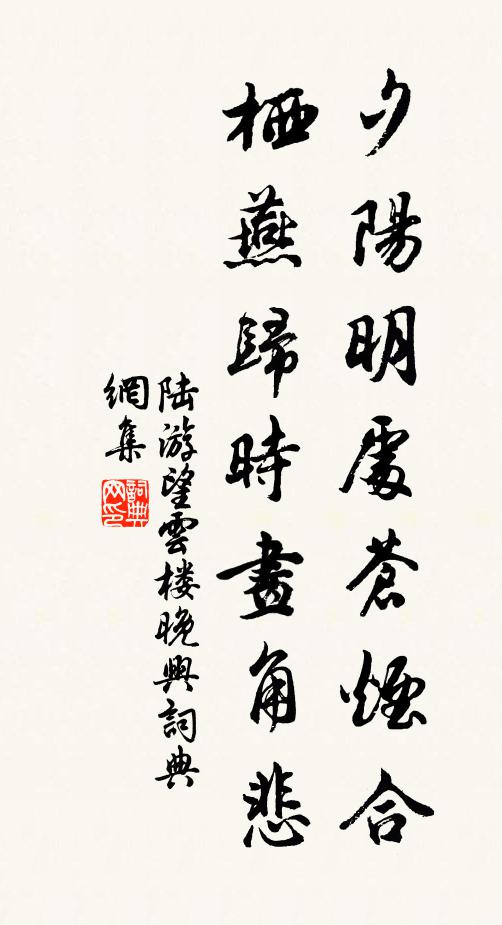 夕陽明處蒼煙合
栖燕歸時畫角悲
陆游望雲楼晚興詞典
網集
詞典
网印